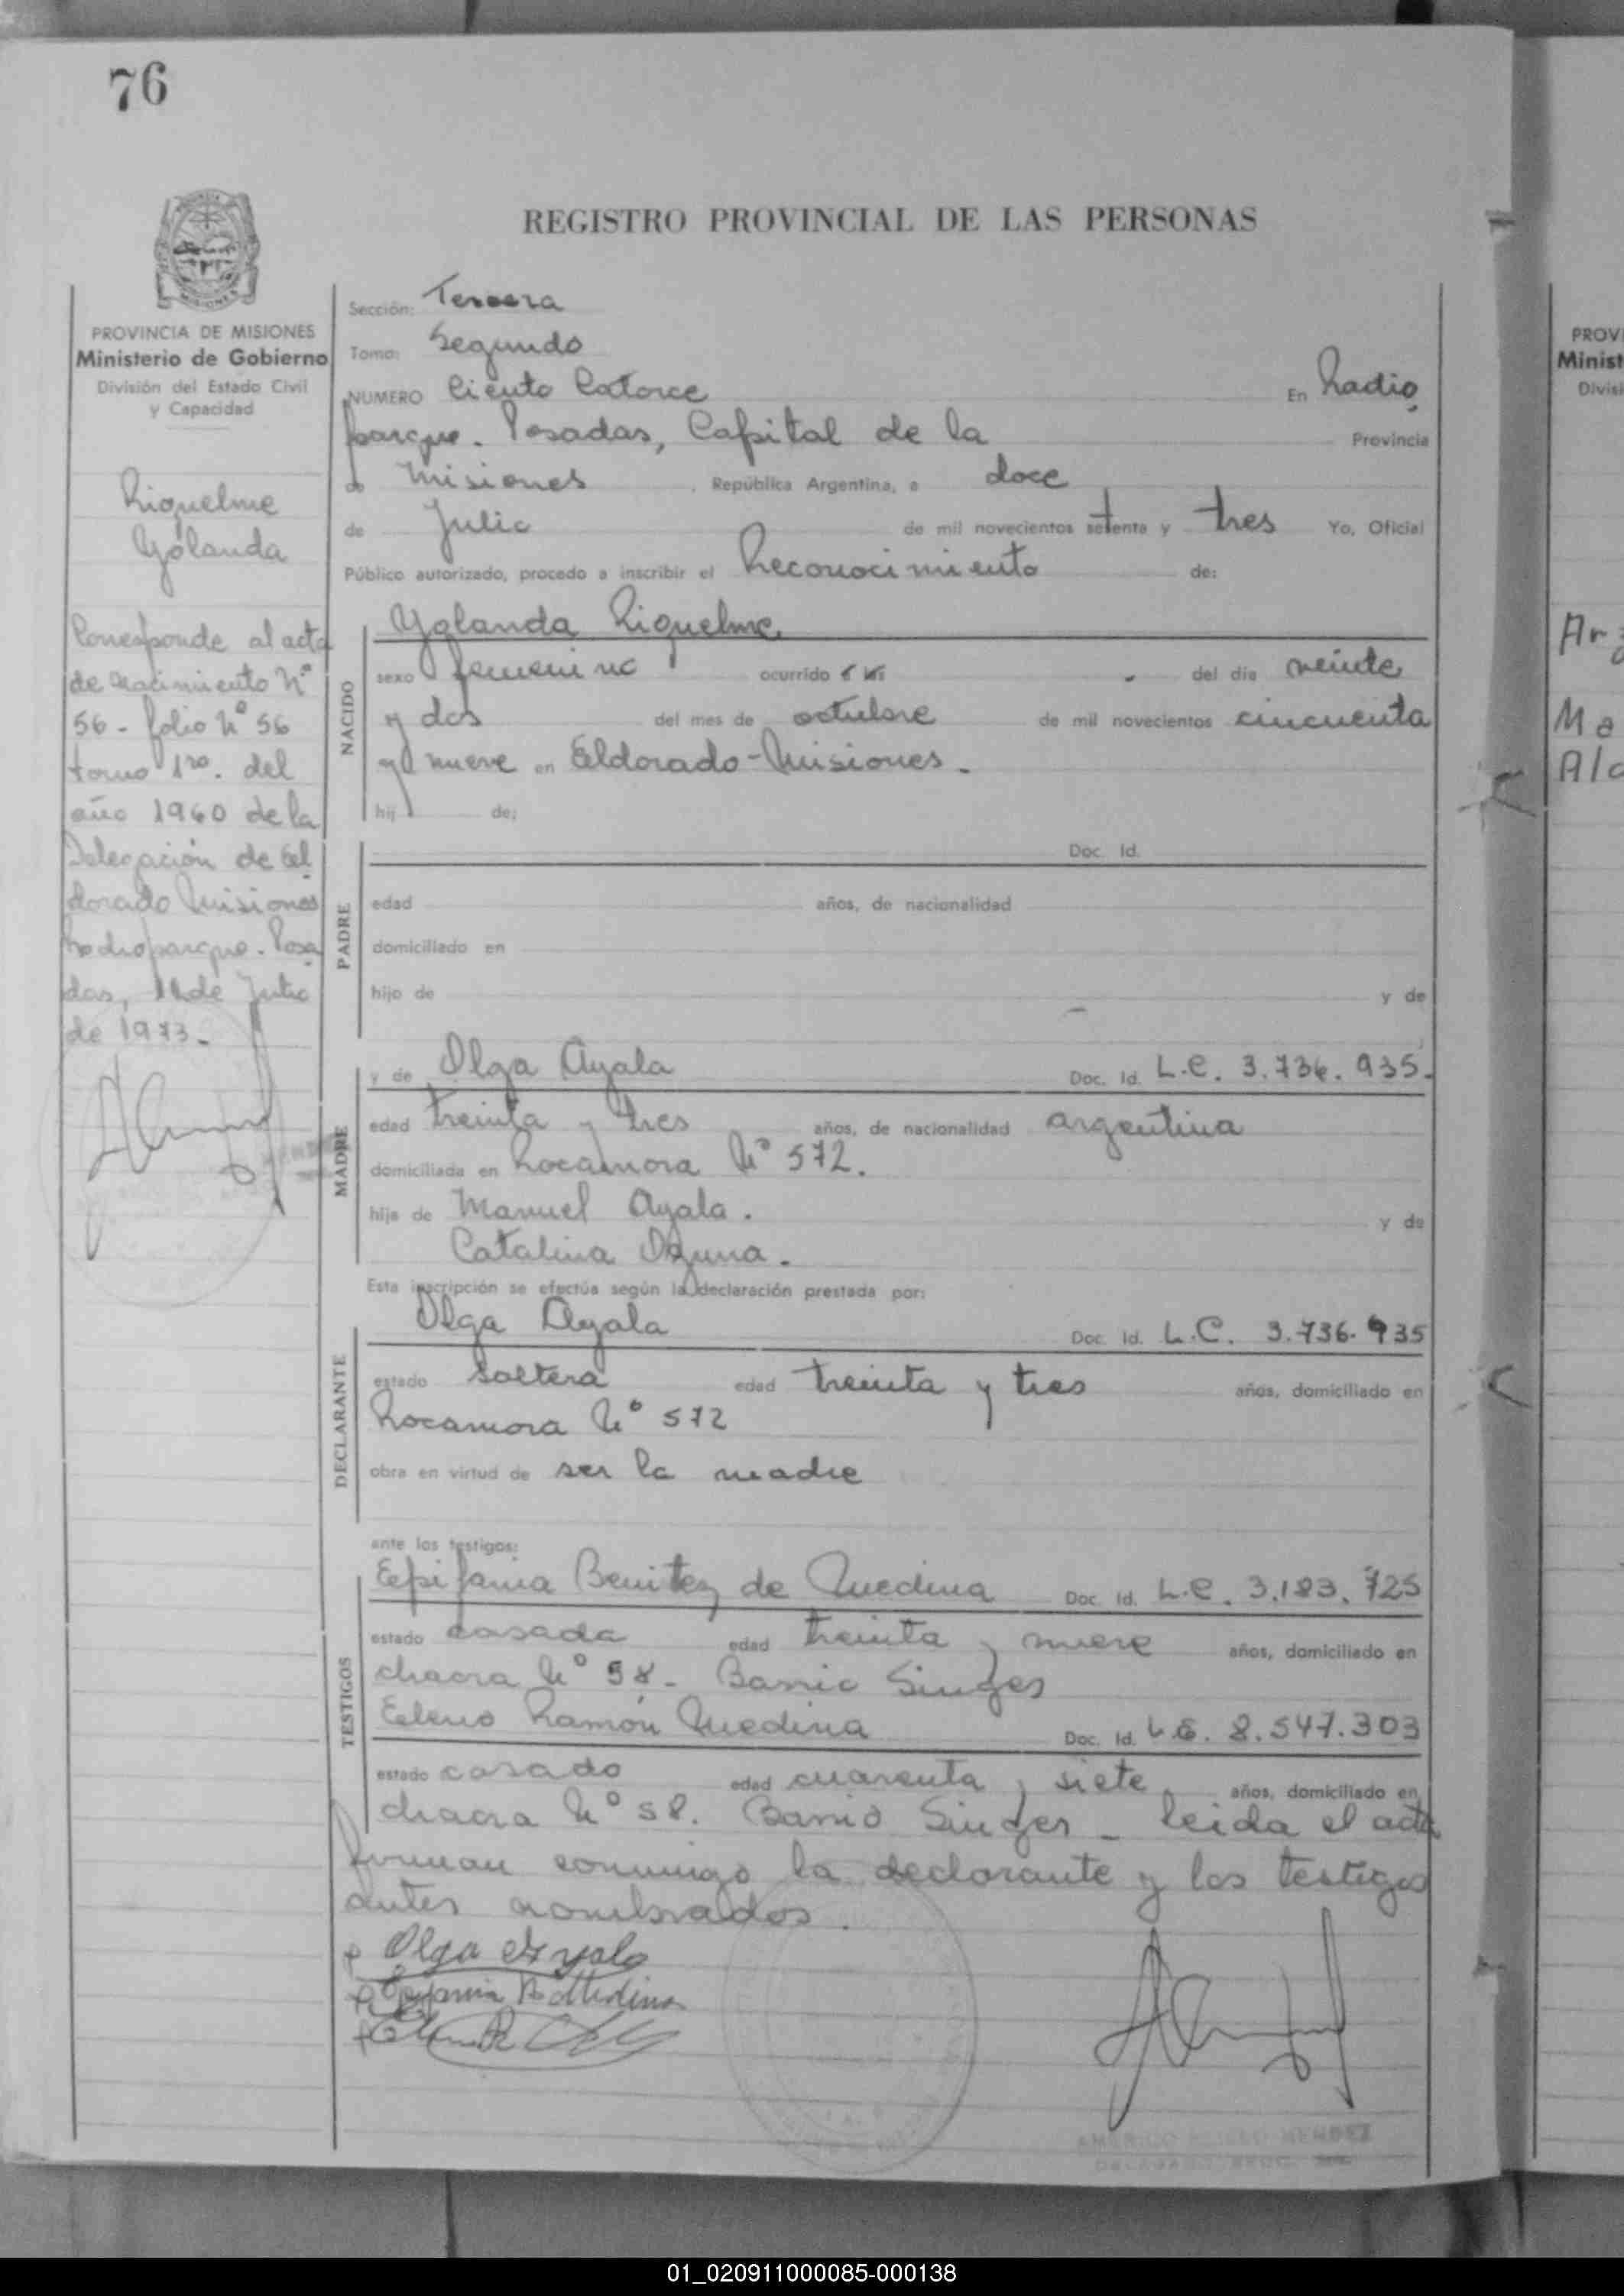 76
REGISTRO PROVINCIAL DE LAS PERSONAS
MISIONES
PROVINCIA DE MISIONES
Ministerio de Gobierno
División del Estado Civil
y Capacidad
Riquelme
Yolanda
Corresponde al acta
de nacimiento Nº
56 - folio Nº 56
tomo 1ro. del
año 1960 de la
Delegación de El
dorado Misiones
Radioparque. Posa
das, 11 de Julio
de 1973.-
Sección: Tercera
Tomo: Segundo
NUMERO Ciento Catorce En Radio
parque. Posadas, Capital de la Provincia
de Misiones , República Argentina, a doce
de Julio de mil novecientos setenta y tres Yo, Oficial
Público autorizado, procedo a inscribir el Reconocimiento de:
NACIDO
Yolanda Riquelme
sexo femenino ocurrido del día veinte
y dos del mes de octubre de mil novecientos cincuenta
y nueve en Eldorado - Misiones -
hij de:
PADRE
Doc. Id.
edad años, de nacionalidad
domiciliado en
hijo de y de
MADRE
y de Olga Ayala Doc. Id. L.C. 3.736.935.
edad treinta y tres años, de nacionalidad argentina
domiciliada en Rocamora Nº 572.
hija de Manuel Ayala. y de
Catalina Ozuna.
Esta inscripción se efectúa según la declaración prestada por:
DECLARANTE
Olga Ayala Doc. Id. L.C. 3.736.935
estado Soltera edad treinta y tres años, domiciliado en
Rocamora Nº 572
obra en virtud de ser la madre
ante los testigos:
TESTIGOS
Epifania Benitez de Medina Doc. Id. L.C. 3.183.725
estado casada edad treinta y nueve años, domiciliado en
chacra Nº 58 - Barrio Singer
Eleno Ramón Medina Doc. Id. L.E. 8.547.303
estado casado edad cuarenta y siete años, domiciliado en
chacra Nº 58. Barrio Singer - leida el acta
firman conmigo la declarante y los testigos
antes nombrados.
Olga Ayala
Epifania B d Medina
MENDEZ
PROVI
Minist
Divisi
Ma
01_020911000085-000138